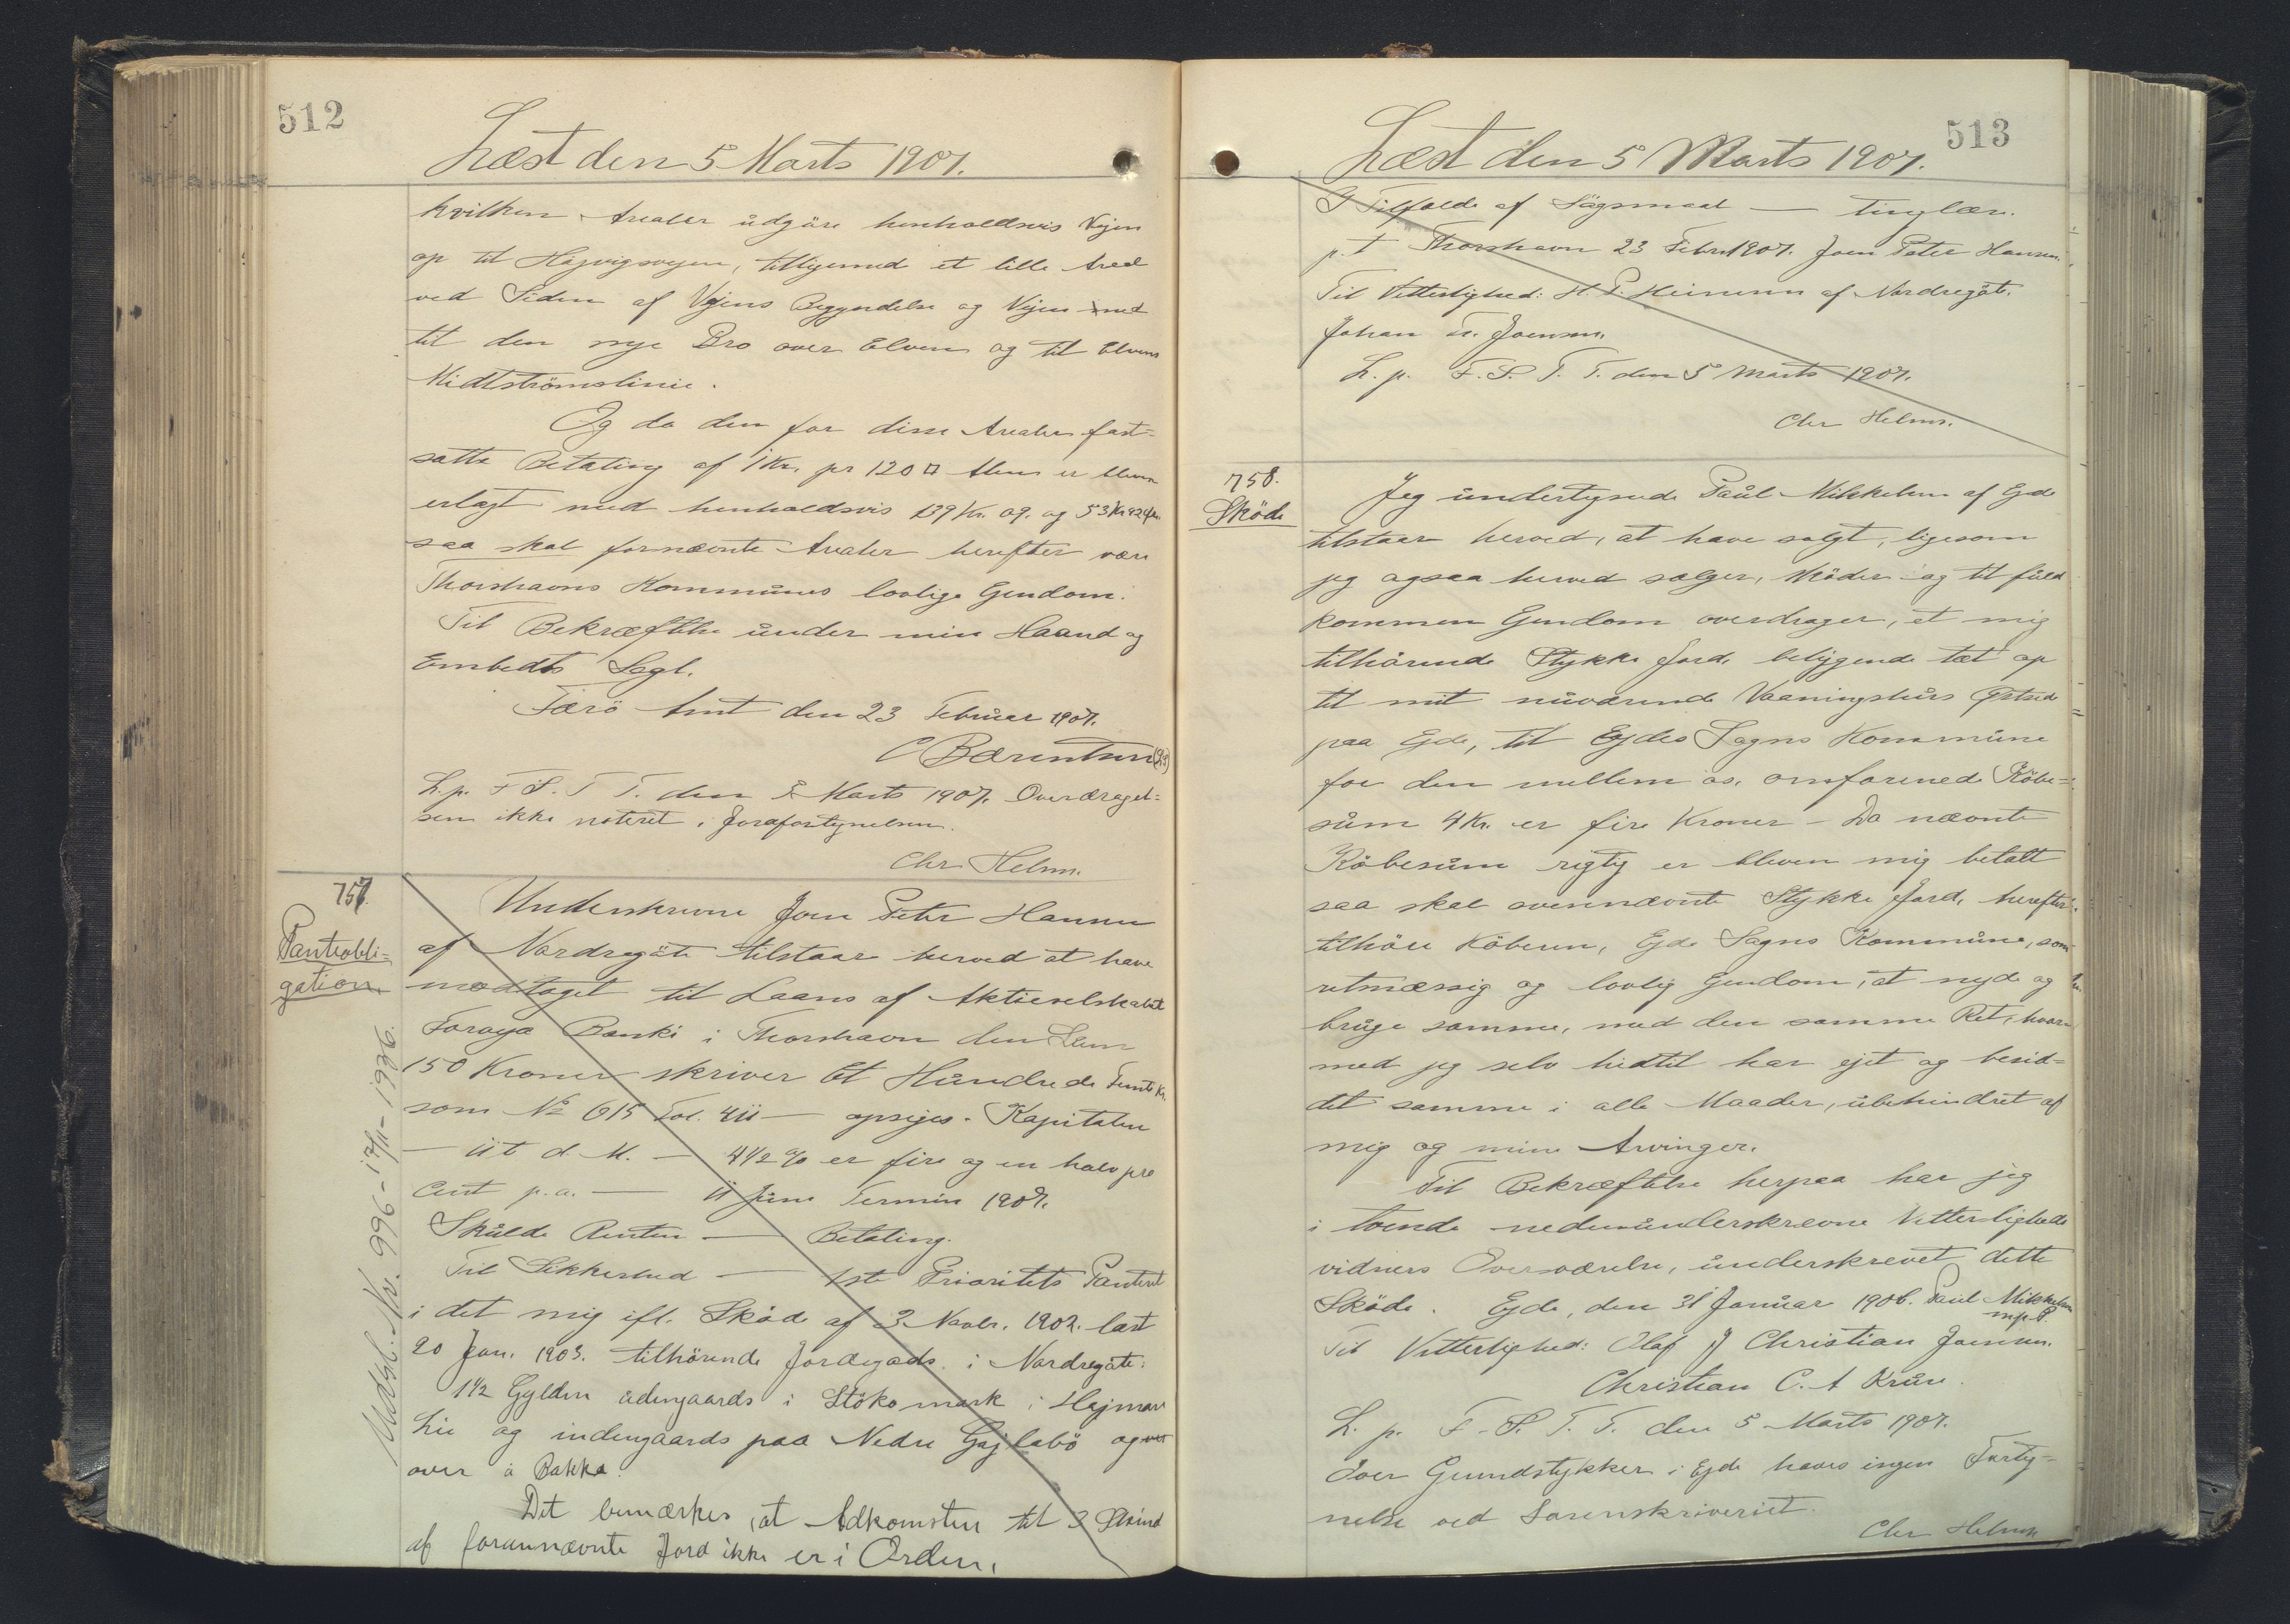 512
Læst den 5 Marts 1907.
hvilken Arealer udgöre henholdsvis Vejen
op til Hojvigsvejen, tilligemed et lille Areal
ved Siden af Vejens Begyndelse og Vejen ned
til den nye Bro over Elven og til Elvens
Midtströmslinie.
Og da den for disse Arealer fast=
satte Betaling af 1 Kr. pr 120 □ Alen er bleven
erlagt med henholdsvis 139 Kr. 09. og 53 Kr 92 Øre
saa skal fornævnte Arealer herefter være
Thorshavns Kommunes lovlige Ejendom.
Til Bekræftelse under min Haand og
Embeds Segl.
Færö Amt den 23 Februar 1907.
C Bærentsen (LS)
L. p. F S. T T. den 5 Marts 1907. Overdragel=
sen ikke noteret i Jordfortegnelsen.
Chr Helms.
757.
Panteobli=
gation
Underskrevne Joen Peter Hansen
af Nordregöte tilstaar herved at have
modtaget til Laans af Aktieselskabet
Foroya Banki i Thorshavn den Sum
150 Kroner skriver Et Hundrede Femti Kr.
som No 615 Fol. 411 — opsiges. Kapitalen
— ut d. M. — 4 1/2 % er fire og en halv pro
Cent p. a. — 11 Juni Termin 1907.
Skulde Renten — Betaling.
Til Sikkerhed — 1ste Prioritets Panteret
i det mig ifl. Sköde af 3 Novbr. 1902. læst
20 Jan. 1903. tilhörende Jordegods. i Nordregöte:
1 1/2 Gylden udengaards i Stöksmark i Hajmar
Lie og indengaards paa Nedre Gajlabö og
over a Bakka.
Det bemærkes, at Adkomsten til 3 Skind
af forannævnte Jord ikke er i Orden.
Udsl. Nr. 996 - 17/11 - 1936.
513
Læst den 5 Marts 1907.
I Tilfælde af Sögsmaal — tinglæse.
p. t Thorshavn 23 Febr 1907. Joen Peter Hansen.
Til Vitterlighed: H. P. Heinesen af Nordregöte.
Johan Joensen.
L. p. F. S. T. T. den 5 Marts 1907.
Chr Helms.
758.
Sköde
Jeg undertegnede Paul Mikkelsen af Ejde
tilstaar herved, at have solgt, ligesom
jeg ogsaa herved sælger, skøder og til fuld
kommen Ejendom overdrager, et mig
tilhörende Stykke Jord, beliggende tæt op
til mit nuværende Vaaningshus Østside
paa Ejde, til Ejdes Sogns Kommune
for den mellem os. omforenede Köbe=
sum 4 Kr. er fire Kroner — Da nævnte
Köbesum rigtig er bleven mig betalt
saa skal ovennævnte Stykke Jord, herefter
tilhöre Köberen, Ejde Sogns Kommune, som
retmæssig og lovlig Ejendom, at nyde og
bruge samme, med den samme Ret, hvor
med jeg selv hidtil har ejet og besid=
det samme i alle Maader, ubehindret af
mig og mine Arvinger.
Til Bekræftelse herpaa har jeg
i tvende nedenunderskrevne Vitterligheds
vidners Overværelse, underskrevet dette
Sköde. Ejde, den 31 Januar 1906. Paul Mikkelsen
m. p. P.
Til Vitterlighed: Olaf J Christian Joensen.
Christian C. A Kruse.
L. p. F. S. T. T. den 5 Marts 1907.
Over Grundstykker i Ejde haves ingen Forteg=
nelse ved Sorenskriveriet.
Chr Helms